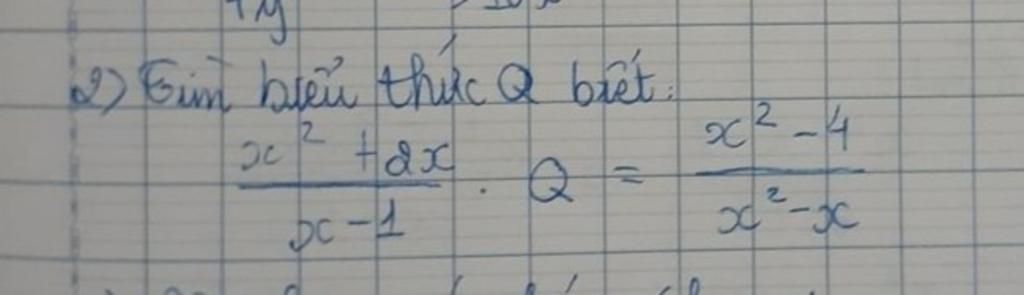 2) Tìm biểu thức Q biết:
x² + 2x / x - 1 . Q = x² - 4 / x² - x